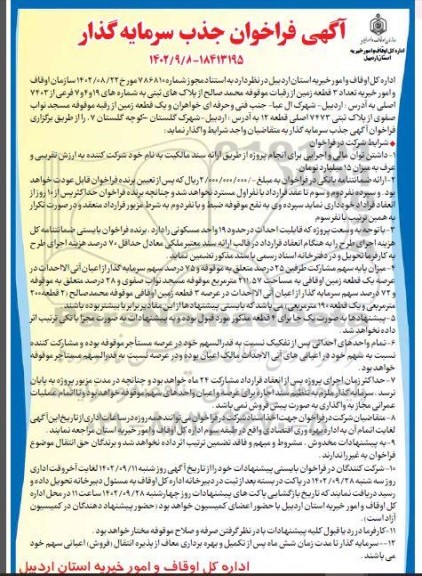 آگهی فراخوان جذب سرمایه گذار
۱۴۰۲/۹/۸-۱۸۴۱۳۱۹۵
اداره کل اوقاف و امور خیریه
استان اردبیل
اداره کل اوقاف و امور خیریه استان اردبیل در نظر دارد به استناد مجوز شماره ۷۸۶۸۱۰ مورخ ۱۴۰۲/۰۸/۲۲ سازمان اوقاف
و امور خیریه تعداد ۳ قطعه زمین از رقبات موقوفه محمد صالح از پلاک های ثبتی به شماره های ۱۹ و ۲ و ۷ فرعی از ۷۴۰۳
اصلی به آدرس : اردبیل- شهرک ال عبا- جنب فنی و حرفه ای خواهران و یک قطعه زمین از رقبه موقوفه مسجد نواب
صفوی از پلاک ثبتی ۷۴۷۳ اصلی قطعه ۱۲ به آدرس : اردبیل - شهرک گلستان -کوچه گلستان ۷. را از طریق برگزاری
فراخوان آگهی جذب سرمایه گذار به متقاضیان واجد شرایط واگذار نماید:
شرایط شرکت در فراخوان
۱- داشتن توان مالی و اجرایی برای انجام پروژه از طریق ارائه سند مالکیت به نام خود شرکت کننده به ارزش تقریبی و
عرف به میزان ۱۵ میلیارد تومان
۲-ارائه ضمانتنامه بانکی در فراخوان به مبلغ ۲/۰۰۰/۰۰۰/۰۰۰ ریال که پس از تعیین برنده فراخوان قابل عودت خواهد
بود و سپرده نفر دوم و سوم تا عقد قرارداد با نفر اول مسترد نخواهد شد و چنانچه برنده فراخوان حداکثر پس از ۱۰ روز از
انعقاد قرارداد خودداری نماید سپرده وی به نفع موقوفه ضبط و با نفر دوم به شرط مزبور قرارداد منعقد و در صورت تکرار
به همین ترتیب با نفر سوم
۳- با توجه به وسعت پروژه که قابلیت احداث در حدود ۱۹ واحد مسکونی را دارد، برنده فراخوان بایستی ضمانتنامه کل
هزینه اجرای طرح را به هنگام انعقاد قرارداد در قالب ارائه سند معتبر ملکی معادل حداقل ۷۰ درصد هزینه اجرای طرح
به کارفرما تحویل و در دفترخانه اسناد رسمی با سند مذکور تضمین نماید.
۴- میزان پایه سهم مشارکت طرفین ۲۵ درصد متعلق به موقوفه و ۷۵ درصد سهم سرمایه گذار از اعیان آتی الاحداث در
عرصه یک قطعه زمین اوقافی به مساحت ۲۱۱.۵۷ مترمربع موقوفه مسجد نواب صفوی و ۲۸ درصد متعلق به موقوفه
و ۷۲ درصد سهم سرمایه گذار از اعیان آتی الاحداث در عرصه ۳ قطعه زمین اوقافی موقوفه محمد صالح (۲ قطعه ۲۰۰
مترمربعی و یک قطعه ۱۹۰ مترمربعی) می باشد که بایستی پیشنهادها از این مقادیر برابر یا بیشتر بوده باشد.
۵- پیشنهادها به صورت یک جا برای ۴ قطعه مذکور مورد قبول بوده و به پیشنهادات به صورت مجزا بانکی ترتیب اثر
داده نخواهد شد.
۶- تمام واحدهای احداثی پس از تفکیک نسبت به قدرالسهم خود در عرصه مستأجر موقوفه بوده و مشارکت کننده
نسبت به سهم خود در اعیانی های آتی الاحداث مالک اعیان بوده و در عرصه نسبت به قدرالسهم مستأجر موقوفه
خواهد بود.
۷- حداکثر زمان اجرای پروژه پس از انعقاد قرارداد مشارکت ۲۴ ماه خواهد بود و چنانچه در مدت مزبور پروژه به پایان
نرسد . سرمایه گذار ملزم به تنظیم سند اجاره برای عرصه و اعیان واحدهای سهم موقوفه خواهد بود و تا اتمام عملیات
عمرانی مجاز به واگذاری به صورت پیش فروش نمی باشد.
۸- متقاضیان شرکت در فراخوان جهت اخذ اسناد شرکت در فراخوان می توانند همه روزه در ساعات اداری از تاریخ این آگهی
لغایت اتمام آن به اداره بهره وری اقتصادی واقع در طبقه سوم اداره کل اوقاف و امور خیریه استان مراجعه نمایند.
۹- به پیشنهادات مخدوش ، مشروط و مبهم و فاقد تضمین ترتیب اثر داده نخواهد شد و برندگان حق انتقال موضوع
فراخوان به غیر را ندارند.
۱۰- شرکت کنندگان در فراخوان بایستی پیشنهادات خود را از تاریخ آگهی روز شنبه ۱۴۰۲/۰۹/۱۱ لغایت آخر وقت اداری
روز سه شنبه ۱۴۰۲/۰۹/۲۸ در پاکت در بسته بعد از ثبت در دبیرخانه اداره کل اوقاف به مسئول دبیرخانه تحویل داده و
رسید دریافت نمایند که تاریخ بازگشایی پاکت های پیشنهادات روز چهارشنبه ۱۴۰۲/۰۹/۲۸ ساعت ۱۱ در محل اداره
کل اوقاف و امور خیریه استان اردبیل با حضور اعضای کمیسیون خواهد بود( حضور پیشنهاد دهندگان در کمیسیون
آزاد است).
۱۱-کارفرما در رد یا قبول کلیه پیشنهادات با در نظر گرفتن صرفه و صلاح موقوفه مختار خواهد بود.
۱۲-سرمایه گذار تا مدت زمان شش ماه پس از تکمیل و بهره برداری معاف از پذیره انتقال (فروش) اعیانی سهم خود
می باشند.
اداره کل اوقاف و امور خیریه استان اردبیل